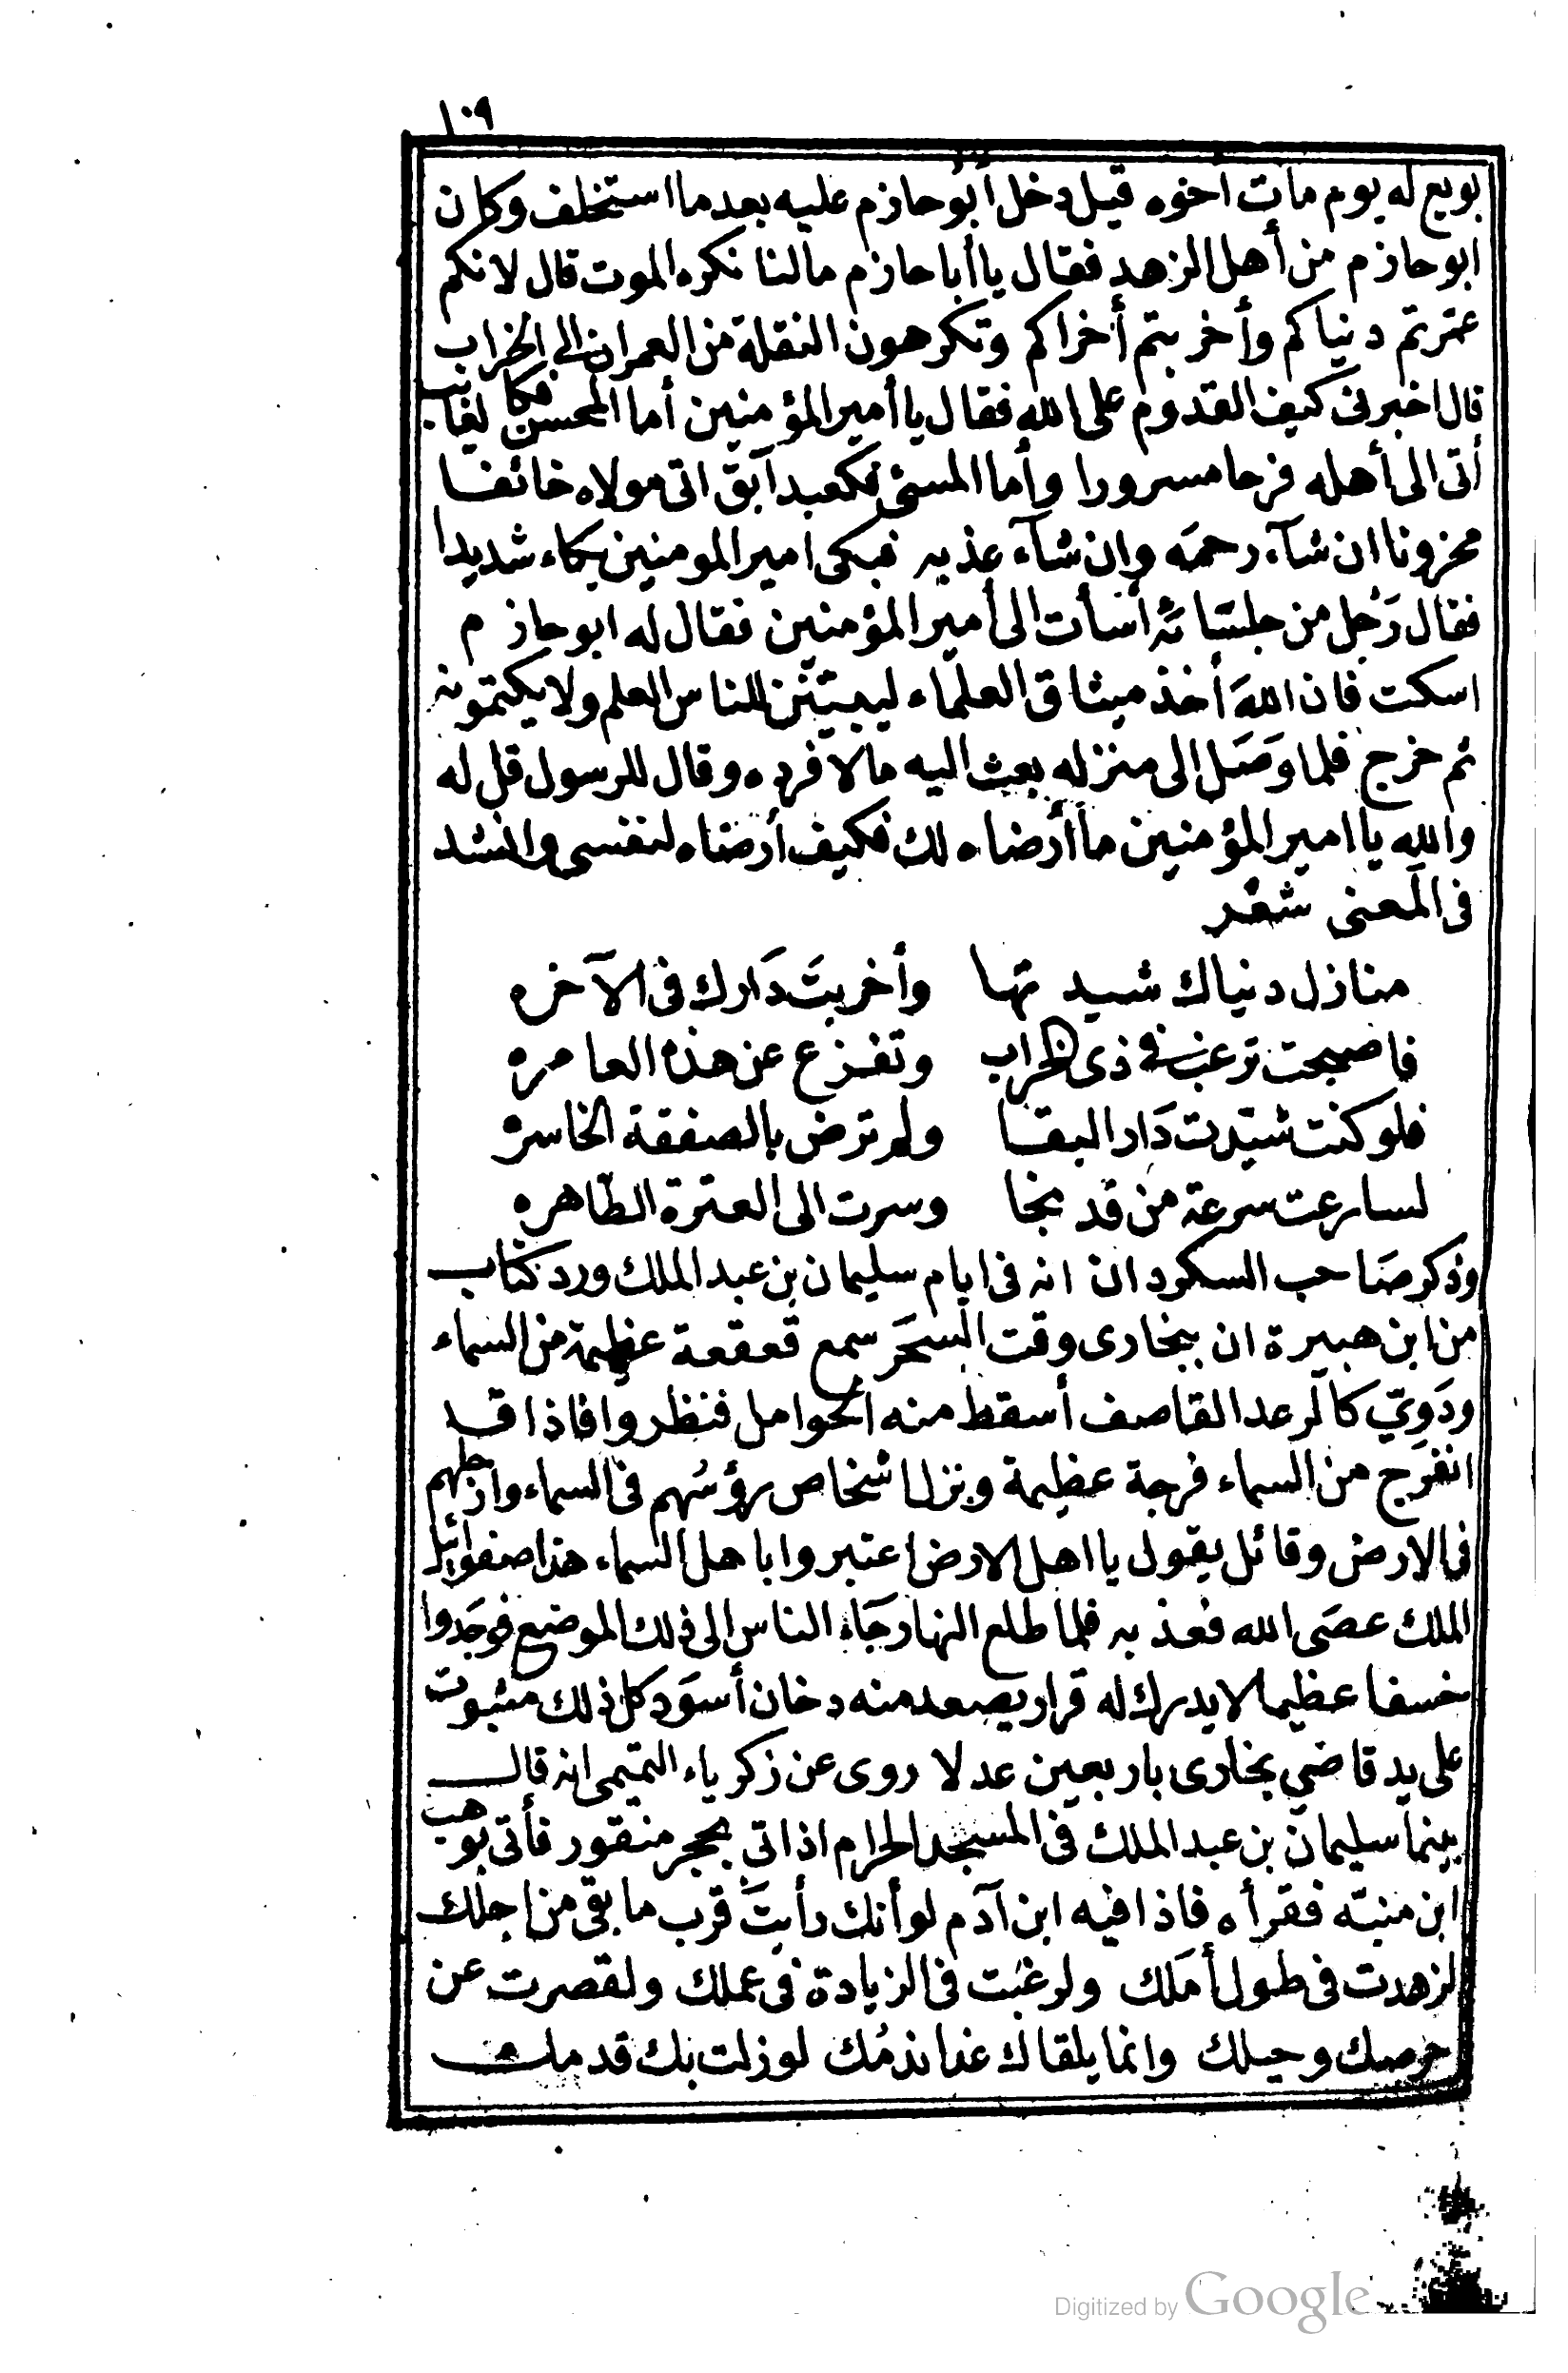 ١٠٩
بويع له يوم مات أخوه قيل دخل أبو حازم عليه بعد ما استخلف وكان
ابو حازم من أهل الزهد فقال يا أبا حازم مالنا نكره الموت قال لانكم
عمرتم دنياكم وأخربتم أخراكم وتكرهون النقلة من العمران الى الخراب
قال اخبرنى كيف القدوم على الله فقال يا أمير المؤمنين أما المحسن فكالغائب
أتى الى أهله فرحا مسرورا وأما المسئ فكعبد آبق اتى مولاه خائفا
محزونا ان شآء رحمه وان شآء عذبه فبكى امير المومنين بكاء شديدا
فقال رَجُل من جلسَائه أسأت الى أمير المؤمنين فقال له ابو حازم
اسكت فان اللهَ أخذ ميثاق العلماء ليبيّنن للناس العلم ولا يكتمونه
ثم خرج فلما وَصَل الى منزله بعث اليه مالا فرده وقال للرسول قل له
والله يا امير المؤمنين ما أرضاه لك فكيف أرضاه لنفسى وانشد
فى المعنى شعْر
منازل دنياك شيدتها وأخربتَ دَارك فى الآخره
فاصبحت ترغب فى ذى الخراب وتفزع عن هذه العامره
فلو كنت شيّدت دَار البقا ولم ترض بالصفقة الخاسره
لسارعت سرعة من قد نجا وسرت الى العترة الطّاهره
وذكر صَاحب السكردان انه فى ايام سليمان بن عبد الملك ورد كتاب
من ابن هبيرة ان ببخارى وقت السحَر سمع قعقعة عظيمة من السماء
ودَوِيّ كالرعد القاصف أسقط منه الحوامل فنظروا فاذا قد
انفرَج من السماء فرجة عظيمة ونزل اشخاص رؤسُهم فى السماء وارجلهم
فى الارض وقائل يقول يا اهل الارض اعتبروا باهل السماء هذا صفوائيل
الملك عصَى الله فعذبه فلما طلع النهار جَاء الناس الى ذلك الموضع فوجَدوا
خسفا عظيما لا يدرك له قرار يصعد منه دخان أسوَد كل ذلك مثبوت
على يد قاضي بخارى باربعين عدلا روى عن زكرياء التميمى انه قال
بينما سليمان بن عبد الملك فى المسجد الحرام اذ اتي بحجر منقور فأتى بوهب
ابن منبّه فقرأه فاذا فيه ابن آدم لو أنك رأيتَ قرب ما بقى من اجلك
لزهدت فى طول أمَلك ولرغبت فى الزيادة فى عملك ولقصرت عن
حرصك وحيلك وانما يلقاك غدا ندمُك لو زلت بك قدمك
Digitized by Google